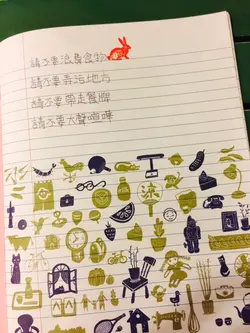 請不要浪費食物
請不要弄污地方
請不要帶走餐牌
請不要大聲喧嘩